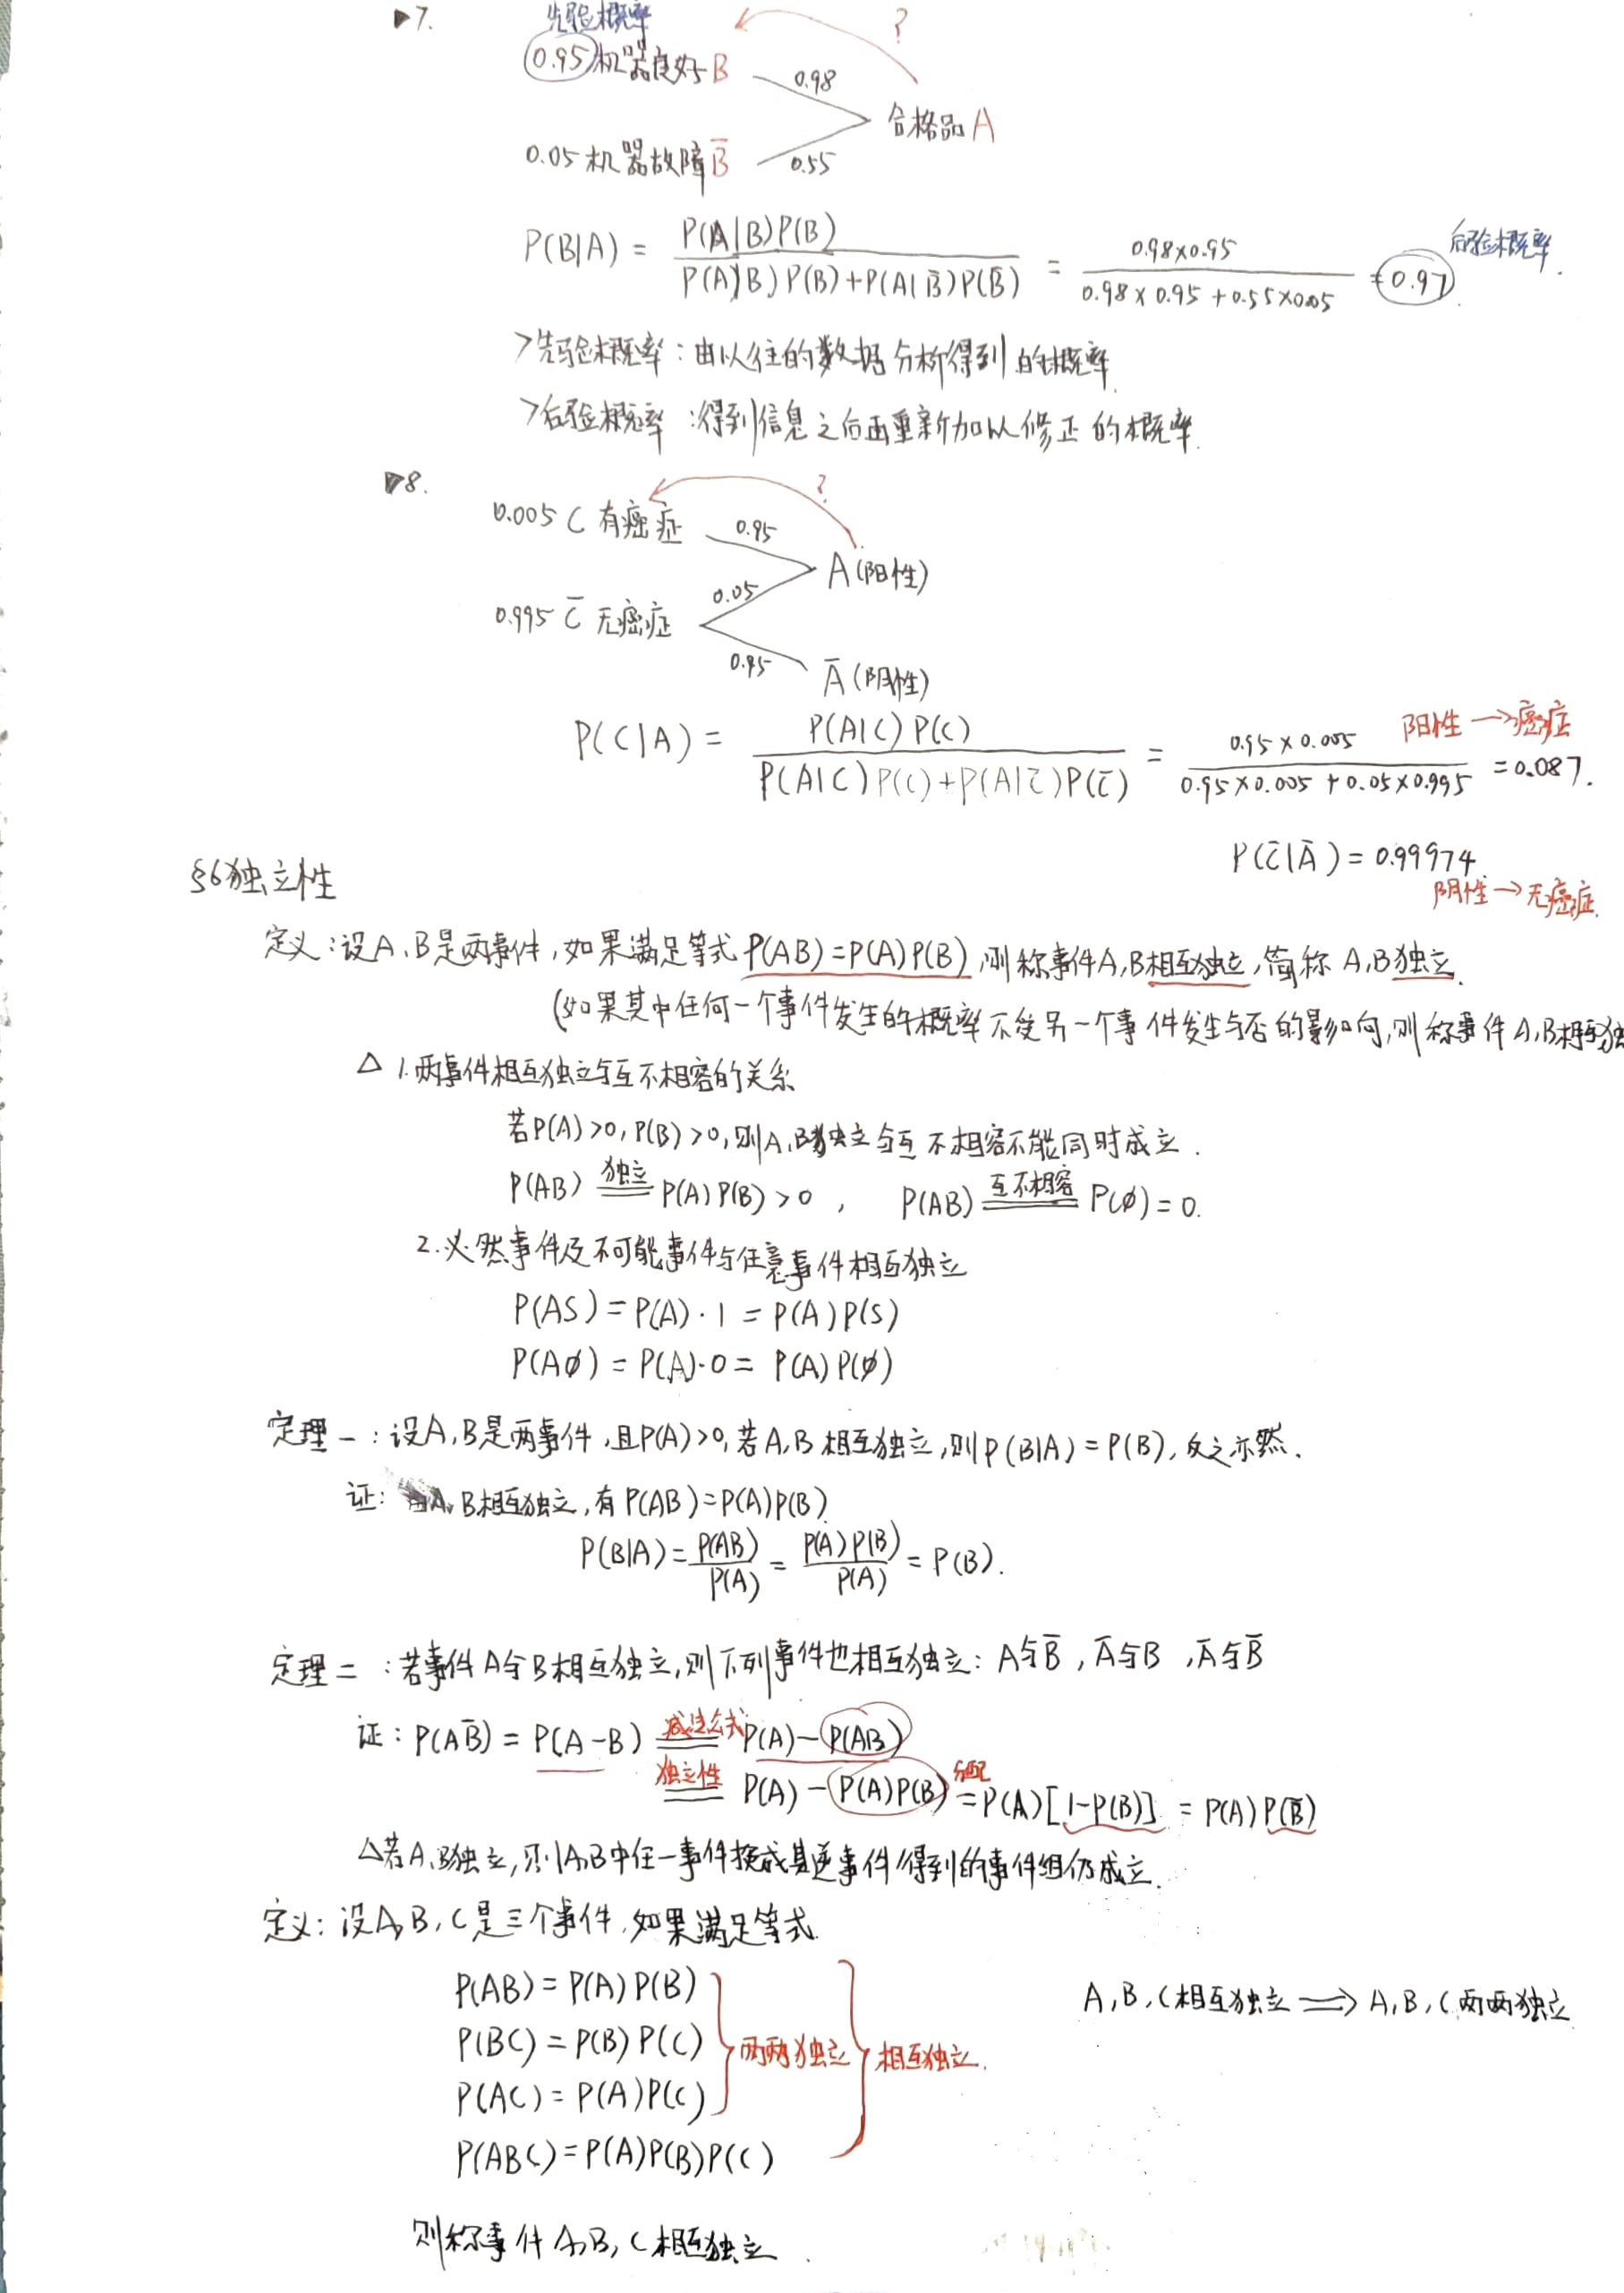 7.
先验概率
?
0.95 机器良好 B
0.98
合格品 A
0.05 机器故障 B̅
0.55
P(B|A) = P(A|B)P(B) / P(A|B)P(B)+P(A|B̅)P(B̅) = 0.98×0.95 / 0.98×0.95+0.55×0.05 = 0.97 后验概率.
>先验概率:由以往的数据分析得到的概率.
>后验概率:得到信息之后再重新加以修正的概率.
8.
?
0.005 C 有癌症
0.95
A(阳性)
0.05
0.995 C̅ 无癌症
0.95
A̅(阴性)
P(C|A) = P(A|C)P(C) / P(A|C)P(C)+P(A|C̅)P(C̅) = 0.95×0.005 / 0.95×0.005+0.05×0.995 = 0.087. 阳性→癌症
P(C̅|A̅) = 0.99974
阴性→无癌症.
§6独立性
定义:设A,B是两事件,如果满足等式P(AB)=P(A)P(B),则称事件A,B相互独立,简称A,B独立.
(如果其中任何一个事件发生的概率不受另一个事件发生与否的影响,则称事件A,B相互独
△ 1.两事件相互独立与互不相容的关系
若P(A)>0,P(B)>0,则A,B独立与互不相容不能同时成立.
P(AB) 独立== P(A)P(B)>0 , P(AB) 互不相容== P(∅)=0.
2.必然事件及不可能事件与任意事件相互独立
P(AS)=P(A)·1=P(A)P(S)
P(A∅)=P(A)·0=P(A)P(∅)
定理一:设A,B是两事件,且P(A)>0,若A,B相互独立,则P(B|A)=P(B),反之亦然.
证: A,B相互独立,有P(AB)=P(A)P(B)
P(B|A)=P(AB)/P(A)=P(A)P(B)/P(A)=P(B).
定理二:若事件A与B相互独立,则下列事件也相互独立:A与B̅,A̅与B,A̅与B̅
证:P(AB̅)=P(A-B) 减法公式== P(A)-P(AB)
独立性== P(A)-P(A)P(B) 分配= P(A)[1-P(B)]=P(A)P(B̅)
△若A,B独立,则A,B中任一事件换成其逆事件得到的事件组仍成立.
定义:设A,B,C是三个事件,如果满足等式.
P(AB)=P(A)P(B)
A,B,C相互独立⟹A,B,C两两独立
P(BC)=P(B)P(C)
两两独立
相互独立.
P(AC)=P(A)P(C)
P(ABC)=P(A)P(B)P(C)
则称事件A,B,C相互独立.